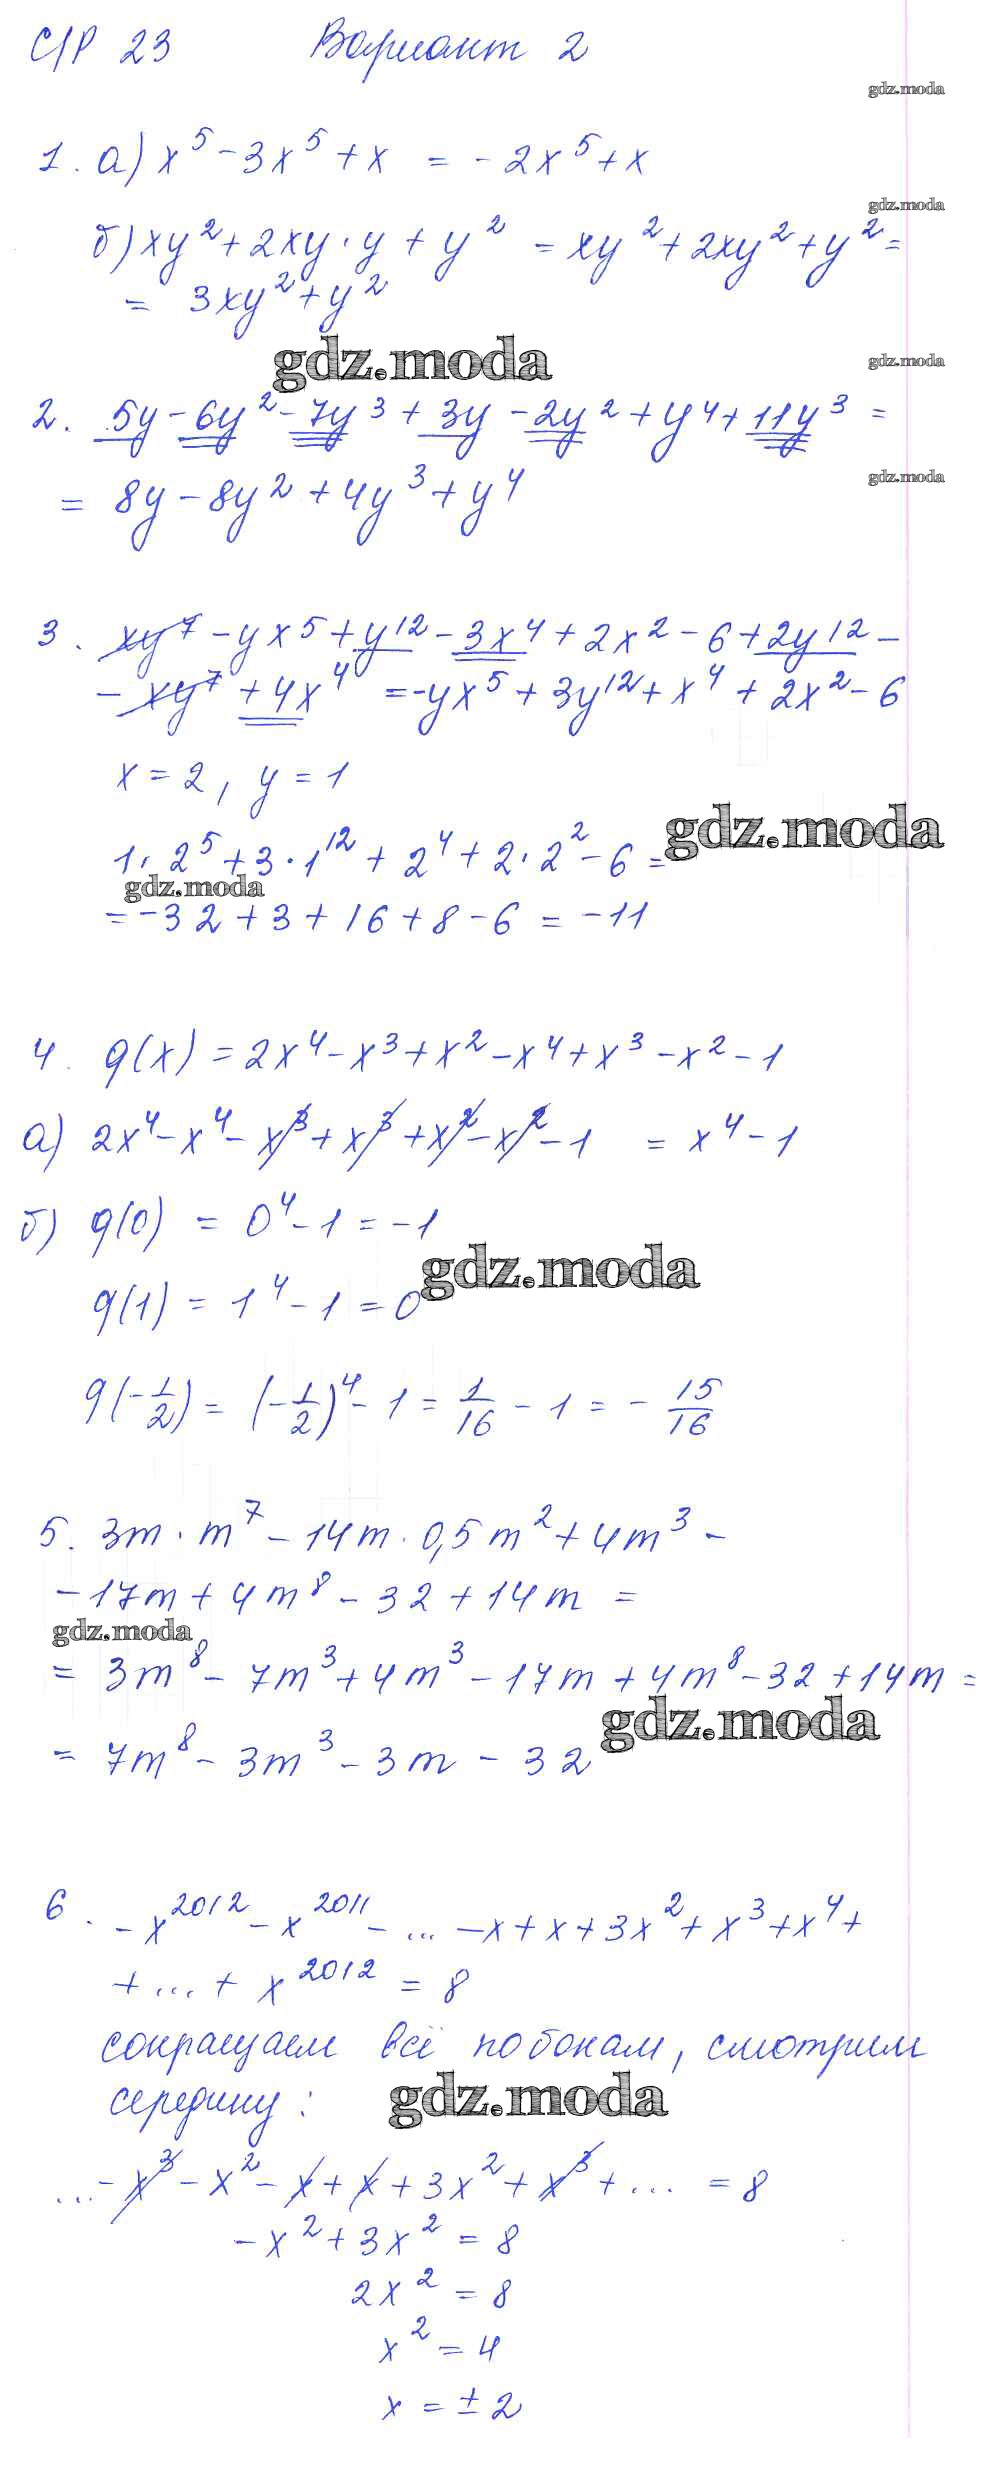 С/Р 23 Вариант 2
gdz.moda
1. а) x⁵ - 3x⁵ + x = - 2x⁵ + x
gdz.moda
б) xy² + 2xy · y + y² = xy² + 2xy² + y² =
= 3xy² + y²
gdz.moda
gdz.moda
2. 5y - 6y² - 7y³ + 3y - 2y² + y⁴ + 11y³ =
gdz.moda
= 8y - 8y² + 4y³ + y⁴
3. xy⁷ - yx⁵ + y¹² - 3x⁴ + 2x² - 6 + 2y¹² -
- xy⁷ + 4x⁴ = -yx⁵ + 3y¹² + x⁴ + 2x² - 6
x = 2, y = 1
gdz.moda
1 · 2⁵ + 3 · 1¹² + 2⁴ + 2 · 2² - 6 =
gdz.moda
= -32 + 3 + 16 + 8 - 6 = -11
4. g(x) = 2x⁴ - x³ + x² - x⁴ + x³ - x² - 1
а) 2x⁴ - x⁴ - x³ + x³ + x² - x² - 1 = x⁴ - 1
б) g(0) = 0⁴ - 1 = -1
gdz.moda
g(1) = 1⁴ - 1 = 0
g(-1/2) = (-1/2)⁴ - 1 = 1/16 - 1 = - 15/16
5. 3m · m⁷ - 14m · 0,5m² + 4m³ -
- 17m + 4m⁸ - 32 + 14m =
gdz.moda
= 3m⁸ - 7m³ + 4m³ - 17m + 4m⁸ - 32 + 14m =
gdz.moda
= 7m⁸ - 3m³ - 3m - 32
6. - x²⁰¹² - x²⁰¹¹ - ... - x + x + 3x² + x³ + x⁴ +
+ ... + x²⁰¹² = 8
сокращаем всё по бокам, смотрим
середину:
gdz.moda
... - x³ - x² - x + x + 3x² + x³ + ... = 8
- x² + 3x² = 8
2x² = 8
x² = 4
x = ± 2